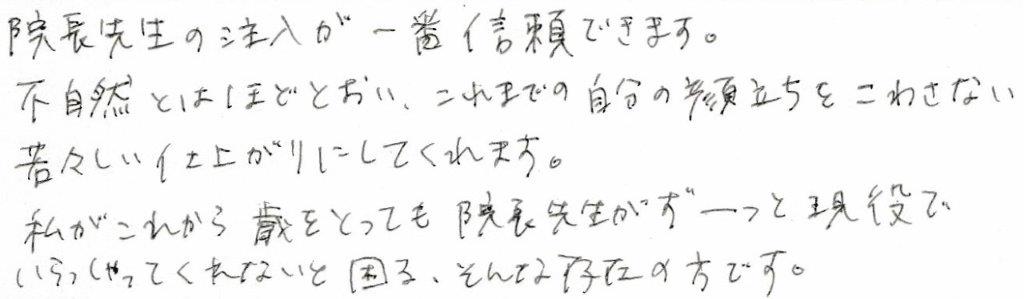 院長先生の注入が一番信頼できます。
不自然とはほどとおい、これまでの自分の顔立ちをこわさない
若々しい仕上がりにしてくれます。
私がこれから歳をとっても院長先生がずーっと現役で
いらっしゃってくれないと困る、そんな存在の方です。